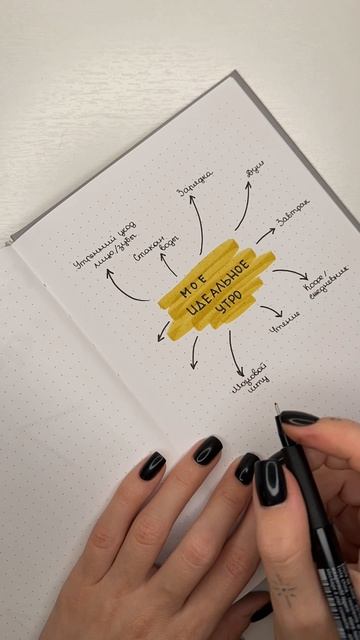 Утренний уход
лицо/зубы
Стакан
воды
Зарядка
Душ
Завтрак
МОЕ
ИДЕАЛЬНОЕ
УТРО
Кофе/
ежедневник
Чтение
Мозговой
штурм